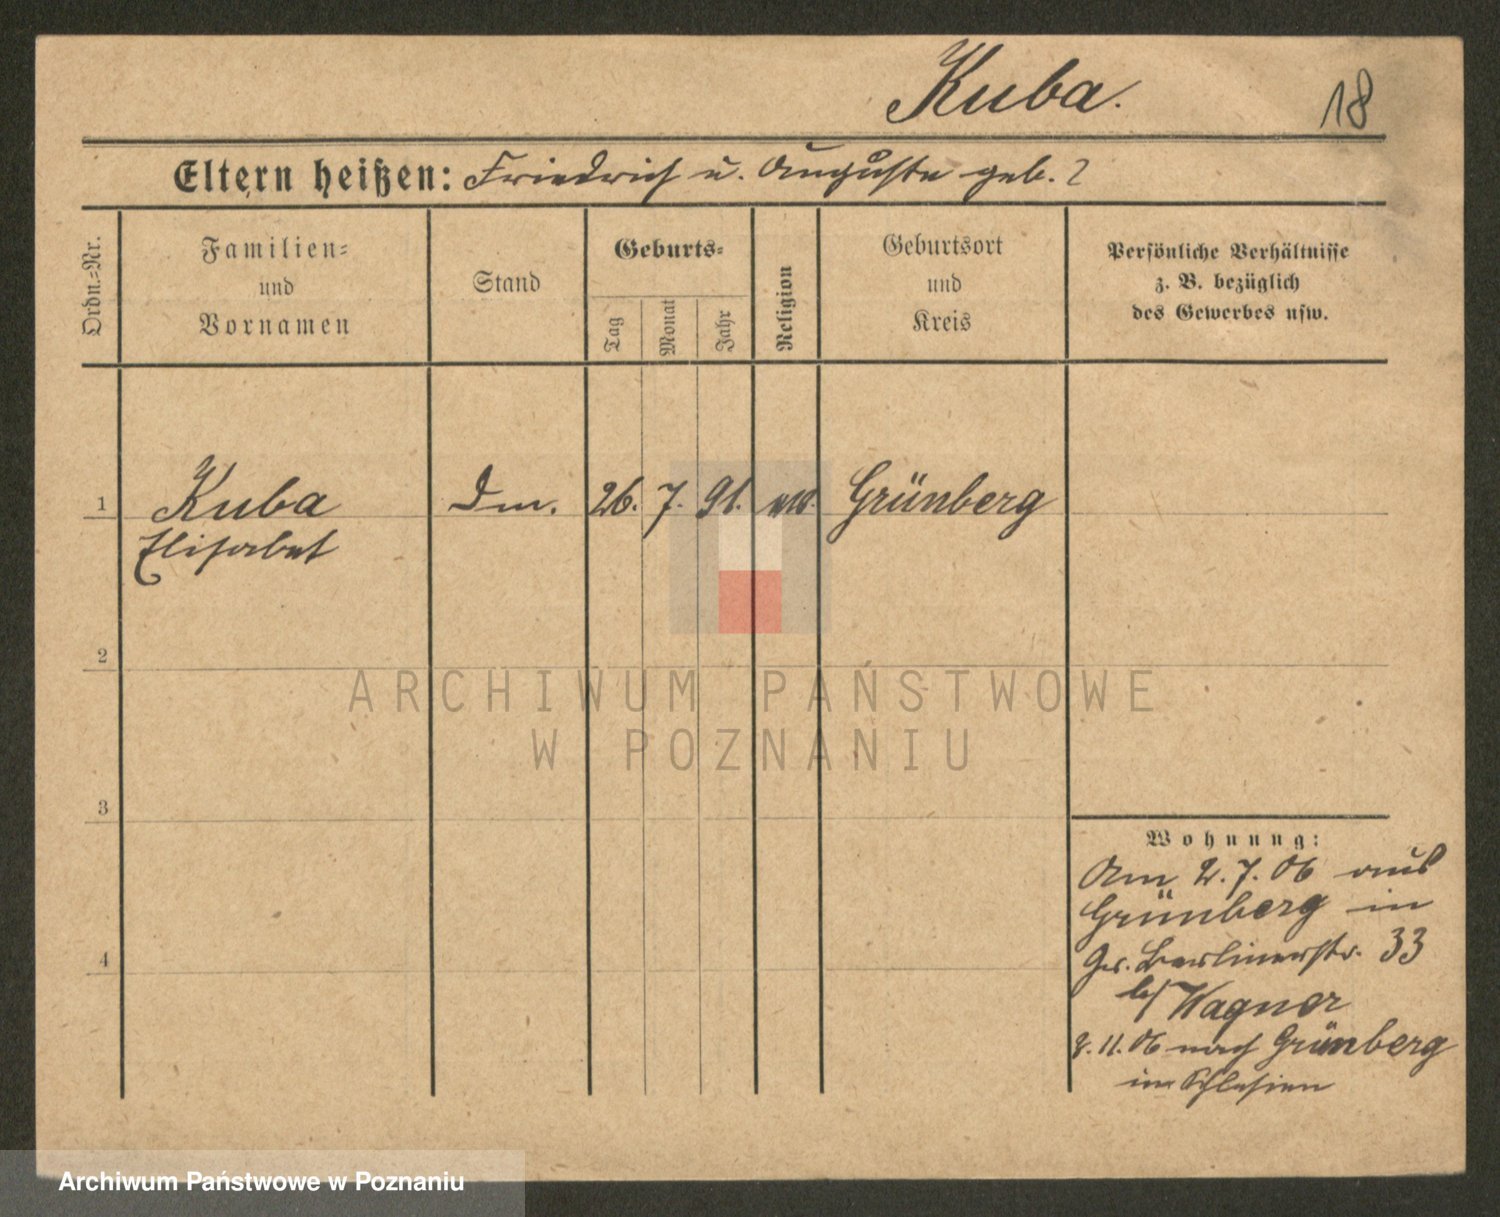 Kuba.
18
Eltern heißen: Friedrich u. Auguste geb. ?
Ordn.-Nr.
Familien-
und
Vornamen
Stand
Geburts-
Tag
Monat
Jahr
Religion
Geburtsort
und
Kreis
Persönliche Verhältnisse
z. B. bezüglich
des Gewerbes usw.
1
Kuba
Elisabet
26. 7. 91.
Grünberg
2
ARCHIWUM PAŃSTWOWE
W POZNANIU
3
Wohnung:
Am 2.7.06 aus
Grünberg in
Gr. Berlinerstr. 33
b/ Wagner
8.11.06 nach Grünberg
in Schlesien
4
Archiwum Państwowe w Poznaniu